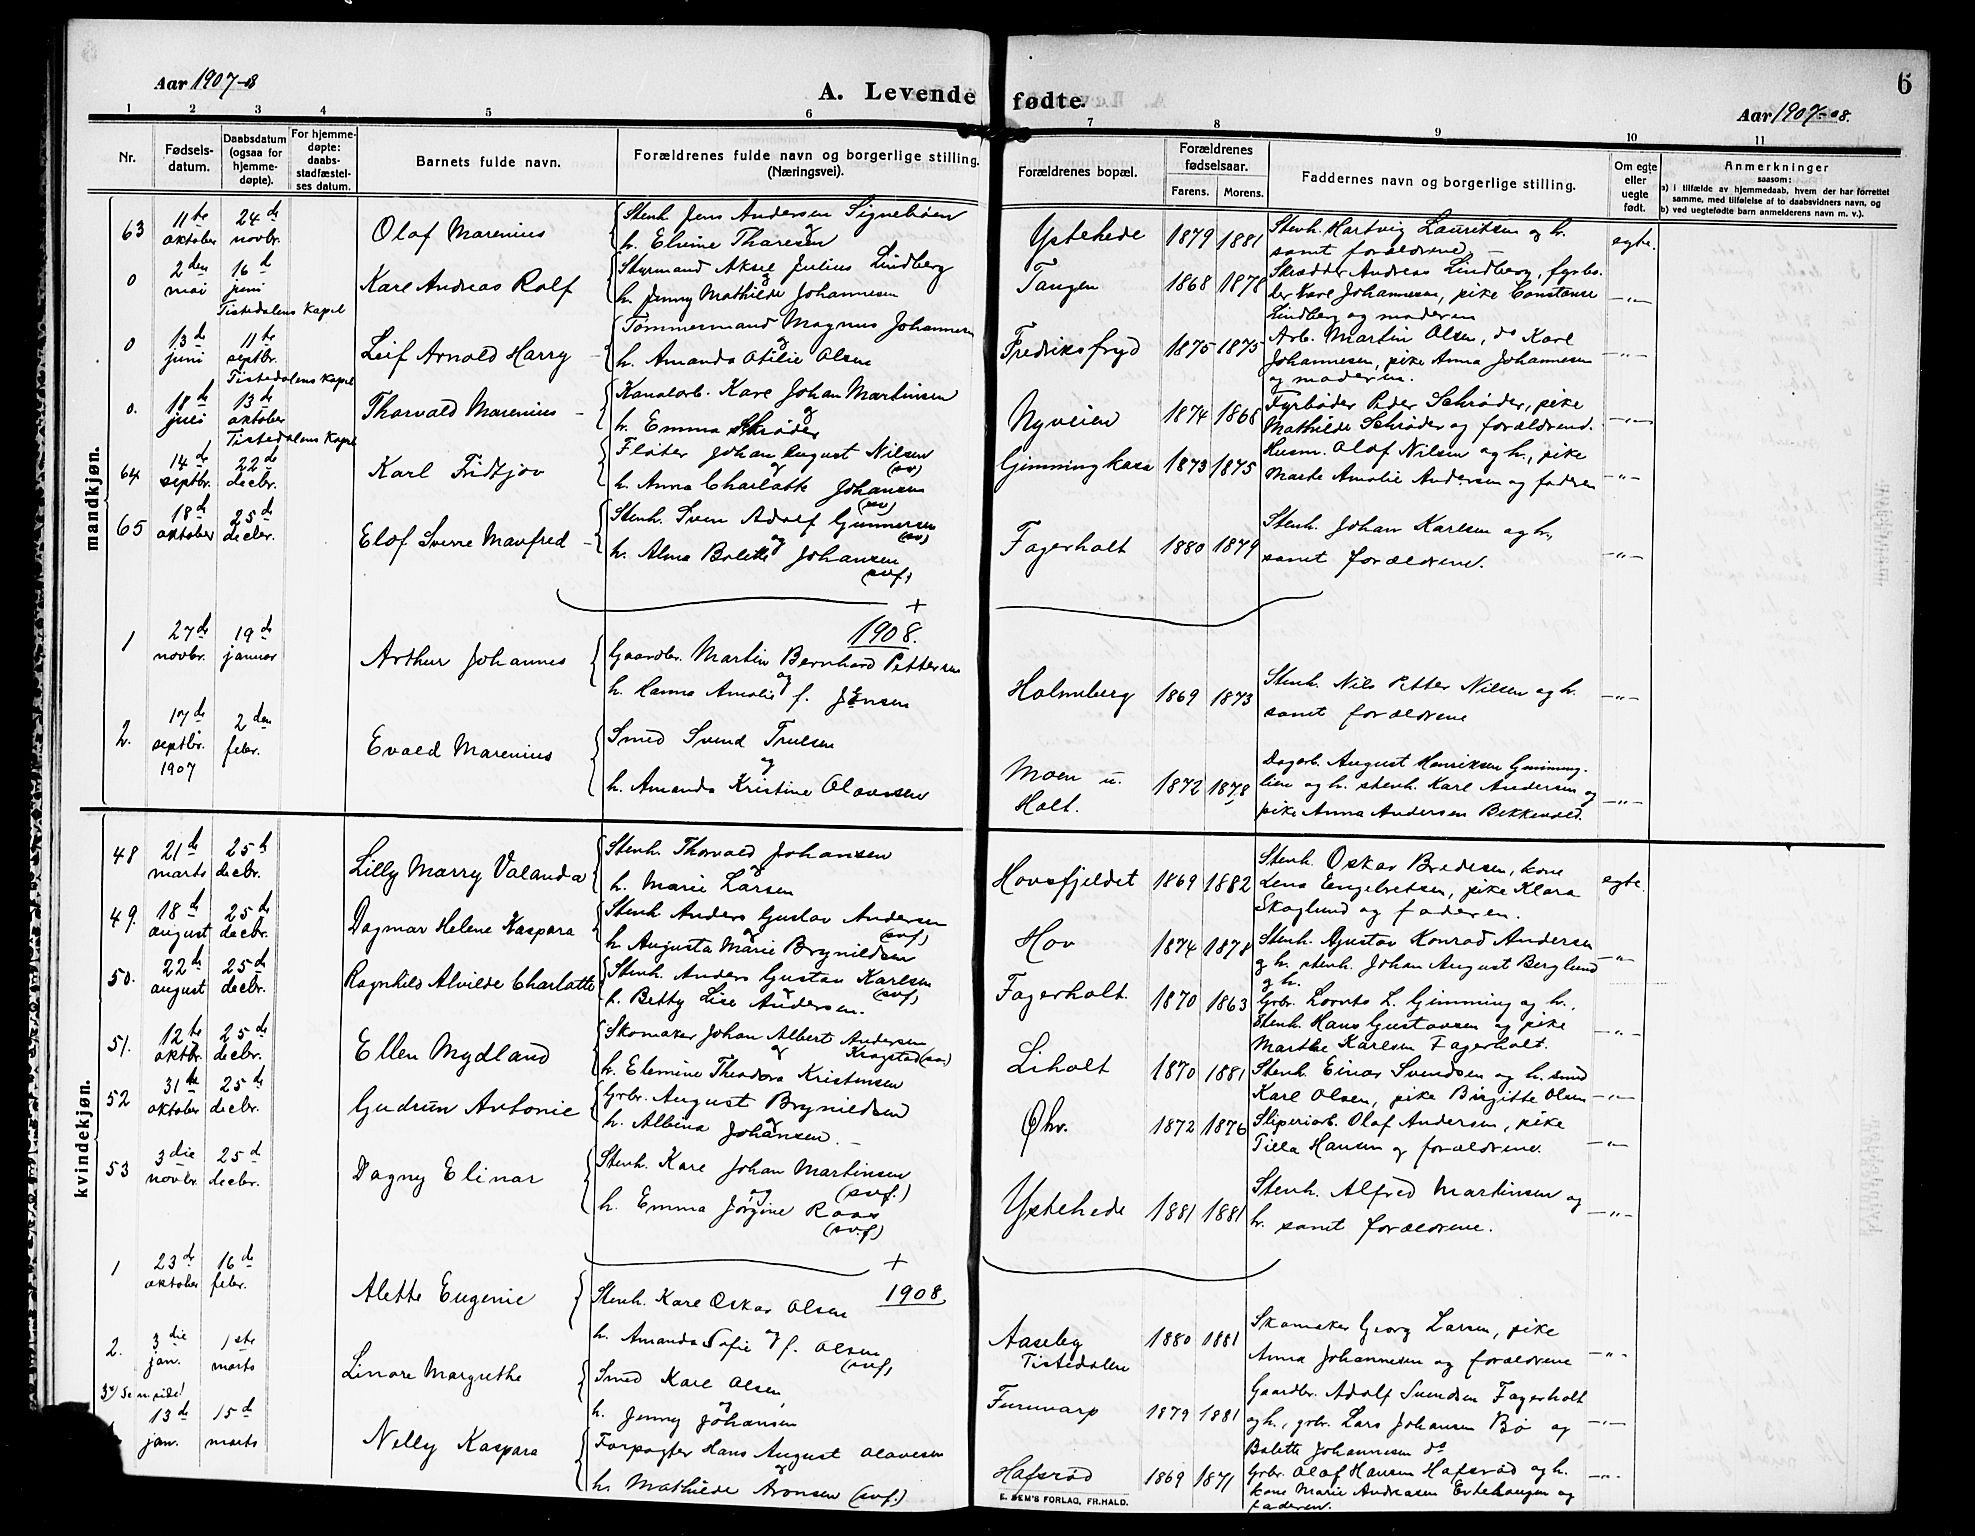 Aar 1907-8
A. Levende fødte.
6
Aar 1907-08.
1 2 3 4 5 6 7 8 9 10 11
Nr.
Fødsels-
datum.
Daabsdatum
(ogsaa for
hjemme-
døpte).
For hjemme-
døpte:
daabs-
stadfæstel-
ses datum.
Barnets fulde navn.
Forældrenes fulde navn og borgerlige stilling.
(Næringsvei).
Forældrenes bopæl.
Forældrenes
fødselsaar.
Farens. Morens.
Faddernes navn og borgerlige stilling.
Om egte
eller
uegte
født.
Anmerkninger
saasom:
a) i tilfælde av hjemmedaab, hvem der har forrettet
samme, med tilføielse af to daabsvidners navn, og
b) ved uegtefødte barn anmelderens navn m. v.).
mandkjøn.
63 11te oktober 24de novbr. Olaf Marenius
Stenh. Jens Andersen Signebøen
og
h. Elvine Tharesen
Ystehede 1879 1881
Stenh. Hartvig Lauritsen og h.
samt forældrene
egte.
0 2den mai 16d juni Karl Andreas Rolf
Tistedalens Kapel
Styrmand Aksel Julius Lindberg
og
h. Jenny Mathilde Johannesen
Tangen 1868 1878
Skrædder Andreas Lindberg, fyrbø-
der Karl Johannesen, pike Constanse
Lindberg og moderen
-"-
0 13d juni 11te septbr. Leif Arnold Harry
Tistedalens Kapel
Tømmermand Magnus Johannesen
og
h. Amanda Otilie Olsen
Fredriksfryd 1875 1875
Arb. Martin Olsen, do Karl
Johannesen, pike Anna Johannesen
og moderen.
-"-
0. 18d juli 13d oktober Thorvald Marenius
Tistedalens Kapel
Kanalarb. Karl Johan Martinsen
og
h. Emma Schrøder
Nyveien 1874 1868
Fyrbøder Peder Schrøder, pike
Mathilde Schrøder og forældrene.
-"-
64 14d septbr. 22d decbr. Karl Fridtjov
Fløter Johan August Nilsen
(sv)
og
h. Anna Charlotte Johansen
(sv)
Gimningkasa 1873 1875
Husm. Olaf Nilsen og h., pike
Marte Amalie Andersen og fadren
-"-
65 18d oktober 25d decbr. Elof Sverre Manfred
Stenh. Sven Adolf Gunnersen
(sv)
og
h. Alma Bolette Johansen
(svf.)
Fagerholt 1880 1879
Stenh. Johan Karlsen og h.,
samt forældrene.
-"-
+
1908.
1 27d novbr. 19d januar Arthur Johannes
Gaardbr. Martin Bernhard Pettersen
og
h. Hanna Amalie f. Jensen
Holmberg 1869 1873
Stenh. Nils Petter Nilsen og h.
samt forældrene
-"-
2. 17d septbr. 1907 2den febr. Evald Marenius
Smed Svend Trulsen
og
h. Amanda Kristine Olavesen
Moen u.
Holt. 1872 1878
Dagarb. August Henriksen Gimning-
lien og h. stenh. Karl Andersen og
pike Anna Andersen Bekkevold.
-"-
kvindekjøn.
48 21de marts 25d decbr. Lilly Marry Valanda
Stenh. Thorvald Johansen
og
h. Marie Larsen
Hovsfjeldet 1869 1882
Stenh. Oskar Bredesen, kone
Lena Engebretsen, pike Klara
Skoglund og faderen.
egte.
49. 18d august 25d decbr. Dagmar Helene Kaspara
Stenh. Anders Gustav Andersen
(svf.)
og
h. Augusta Marie Brynildsen
Hov 1874 1878
Stenh. Gustav Konrad Andersen
og h. stenh. Johan August Berglund
og h.
-"-
50. 22d august 25d decbr. Ragnhild Alvilde Charlotte
Stenh. Anders Gustav Karlsen
(svf.)
h. Betty Lise Andersen.
Fagerholt. 1870 1863
Grbr. Lornts L. Gimming og h.,
Stenh. Hans Gustavsen og pike
Marthe Karlsen Fagerholt.
-"-
51. 12te oktbr. 25d decbr. Ellen Mydland
Skomaker Johan Albert Andersen
og Kragstad (sv)
h. Elemine Theodora Kristensen
Liholt 1870 1881
Stenh. Einar Svendsen og h. smed
Karl Olsen, pike Birgitte Olsen
-"-
52 31te oktober 25d decbr. Gudrun Antonie
Grbr. August Brynildsen
og
h. Albina Johansen.
Øhr. 1872 1876
Sliperiarb. Olaf Andersen, pike
Tilla Hansen og forældrene.
-"-
53 3die novbr. 25d decbr. Dagny Elinar
Stenh. Karl Johan Martinsen
(svf.)
og
h. Emma Jørgine Roos
(sv.f)
Ystehede 1881 1881
Stenh. Alfred Martinsen og
h. samt forældrene.
-"-
+
1908.
1 23d oktober 16d febr. Alette Eugenie
Stenh. Karl Oskar Olsen
og
h. Amanda Sofie f. Olsen
(svf.)
Aaseby
Tistedalen 1880 1881
Skomaker Georg Larsen, pike
Anna Johannesen og forældrene
-"-
2. 3die jan. 1ste marts Linore Margrethe
Smed Karl Olsen
og
h. Jenny Johansen
Furuvarp 1879 1881
Gaardbr. Adolf Svendsen Fagerholt
og h., grbr. Lars Johansen Bø og
Bolette Johannesen do
-"-
13d jan. 15d marts Nelly Kaspara
Forpagter Hans August Olavesen
og
h. Mathilde Aronsen (svf.)
Hafsrød 1869 1871
Grbr. Olaf Hansen Hafsrød og h.
kone Marie Andreasen Ertehaugen og
faderen.
-"-
E. SEM'S FORLAG, FR.HALD.